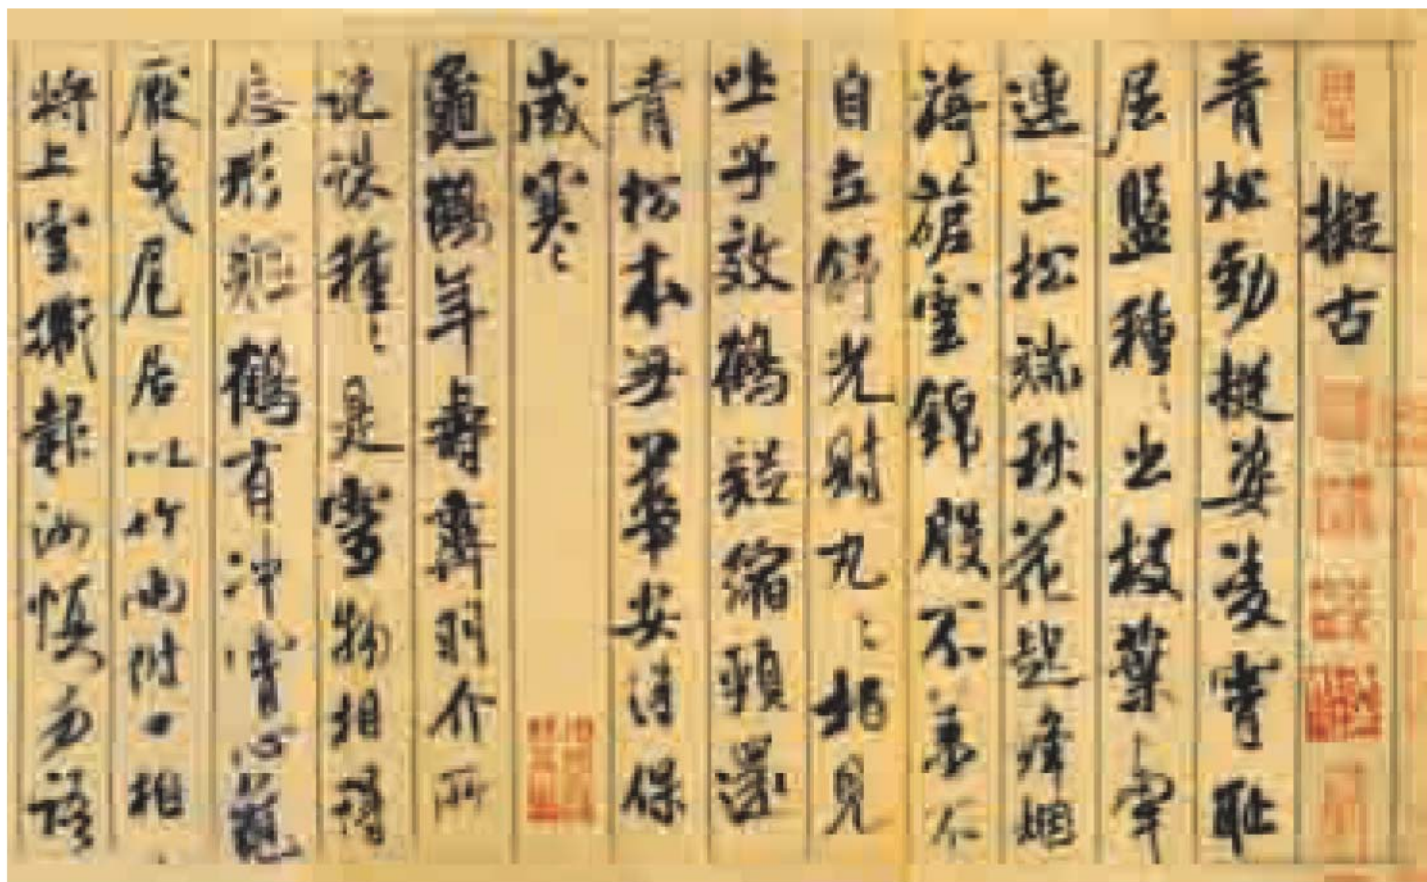 擬古
青松勁挺姿凌霄恥
屈盤種々出枝葉牽
連上松端秋花起絳烟
旖旎雲錦殷不羞不
自立舒光射丸々柏見
吐子效鶴疑縮頸還
青松本無華安得保
歲寒
龜鶴年壽齊羽介所
託殊種々是靈物相得
忘形軀鶴有沖霄心龜
厭曳尾居以竹兩附口相
將上雲衢報汝慎勿語